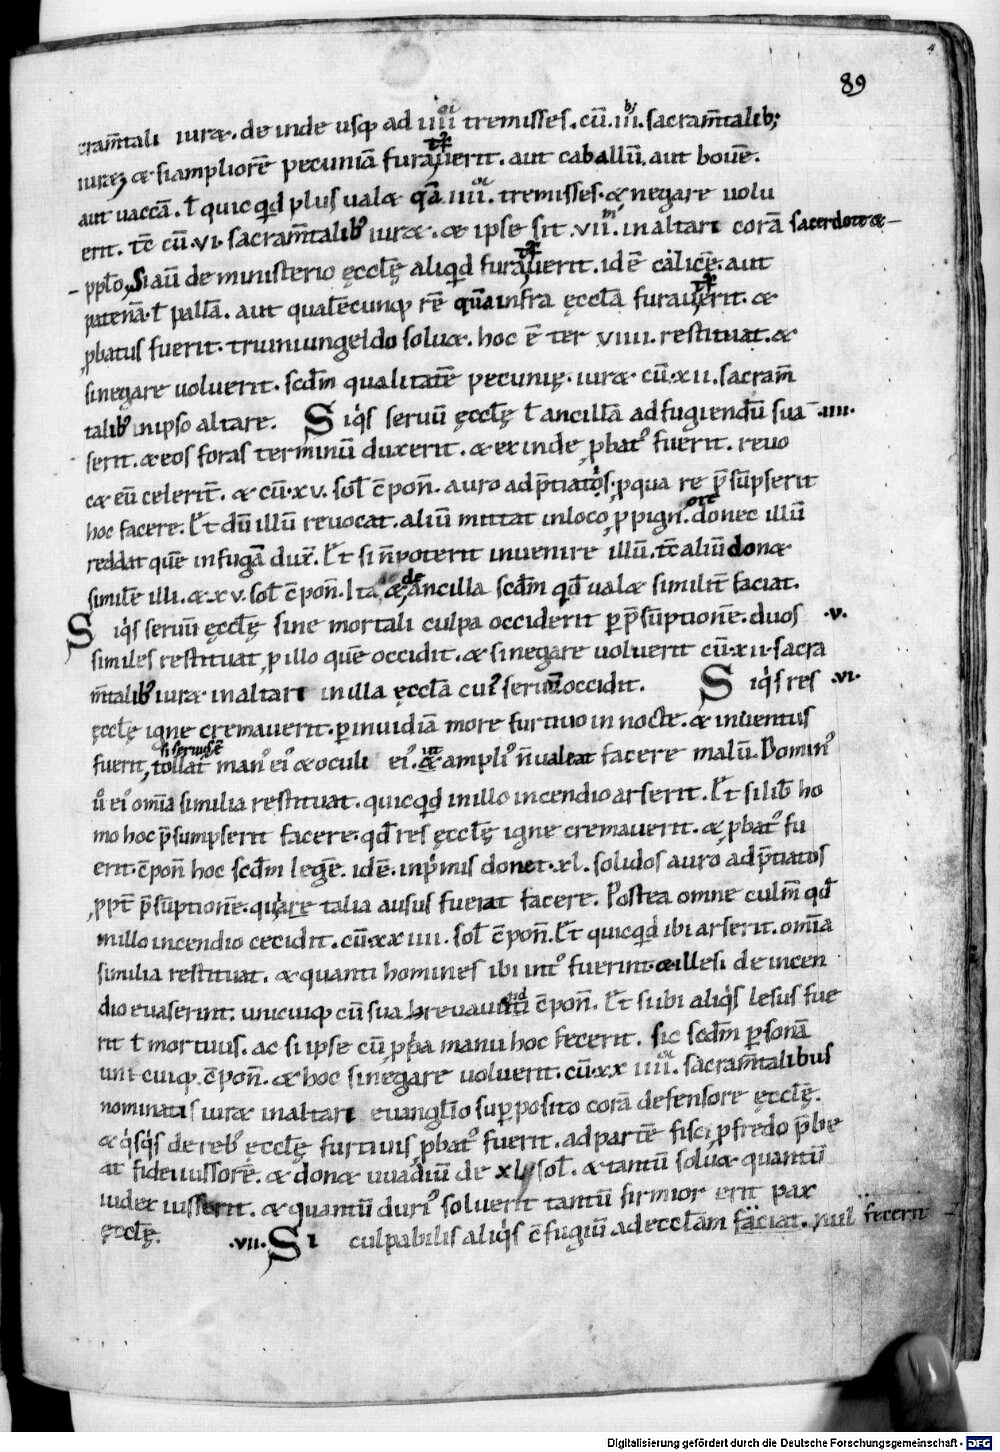 89
cram̄tali iurae. de inde usq; ad iiii tremisses. cū. iii. sacram̄talib;
iurae; & si ampliorē pecuniā furauerit. aut caballū, aut bouē.
aut uaccā. ł quicq̄d plus ualæ quā iiii. tremisses. & negare uolu
erit. tc̄ cū. vi. sacram̄talib; iuræ. & ipse sit. vii. in altari corā sacerdote &
pplo, Si aū de ministerio ęccłę aliq̄d furauerit. id ē cālicē. aut
patenā. ł pallā. aut qualēcunq; rē quā infra ęccłā furauerit. &
ꝓbatus fuerit. triuniungeldo soluæ. hoc ē ter viiii. restituat. &
si negare uoluerit. scd̄m qualitatē pecunię. iuræ cū. xii. sacram̄
talib; in ipso altare. Siq̇s seruū ęccłę ł ancillā ad fugiendū sua .iiii.
serit. & eos foras terminū duxerit. & exinde ꝓbat᾿ fuerit. reuo
cæ eū celerit̄. & cū. xv. sol̄ c̄pon̄. auro adp̄tiatos. ꝓ qua re p̄sūpserit
hoc facere. Et dū illū reuocat. aliū mittat in loco ꝓ pign̄ore donec illū
reddat quē in fugā dux̄. Et si n̄ poterit inuenire illū. tc̄ aliū donæ
similē illi. & xv. sol̄ c̄pon̄. Ita & de ancilla scd̄m qd̄ ualæ similit̄ faciat.
Siq̇s seruū ęccłę sine mortali culpa occiderit per p̄sūptionē. duos .v.
similes restituat ꝓ illo quē occidit. & si negare uoluerit cū. xii. sacra
m̄talib; iuræ in altari in illa ęccłā cui᾿ seruū occidit. Siq̇s res .vi.
ęccłę igne cremauerit. per inuidiā more furtiuo in nocte. & inuentus
fuerit, si seruus ē tollat̄ man᾿ ei᾿ & oculi ei᾿. ut ampli᾿ n̄ ualeat facere malū. Domin᾿
u̇ ei᾿ om̄ia similia restituat. quicq̄d in illo incendio arserit. Et si lib̄ ho
mo hoc p̄sumpserit facere. qd̄ res ęccłę igne cremauerit. & ꝓbat᾿ fu
erit. c̄pon̄ hoc scd̄m legē. id ē. in ṗmis donet. xl. solidos auro adp̄tiatos
ꝓpt̄ p̄sūptionē. quare talia ausus fuerat facere. Postea omne culm̄ qd̄
in illo incendio cecidit. cū. xxiiii. sol̄ c̄pon̄. Et quicq̄d ibi arserit. om̄ia
similia restituat. & quanti homines ibi int᾿ fuerint. & illesi de incen
dio euaserint: unicuiq; cū sua hreuauunti c̄pon̄. Et si ibi aliq̇s lesus fue
rit ł mortuus. ac si ipse cū ꝓṗa manu hoc fecerit. sic scd̄m p̱sonā
uni cuiq; c̄pon̄. & hoc si negare uoluerit. cū. xxiiii. sacram̄talibus
nominatis iuræ in altari euanglīo sup̱posito corā defensore ęccłę.
& q̇sq̇s de reb; ęccłę furtiuis ꝓbat᾿ fuerit. ad partē fisci ꝓ fredo p̄be
at fideiussorē. & donæ uuadiū de xl sol̄. & tantū soluæ quantū
iudex iusserit. & quantū duri᾿ soluerit tantū firmior erit pax
ęccłę. .vii. Si culpabilis aliq̇s c̄fugiū ad eccłam faciat. nul fecerit
Digitalisierung gefördert durch die Deutsche Forschungsgemeinschaft - DFG